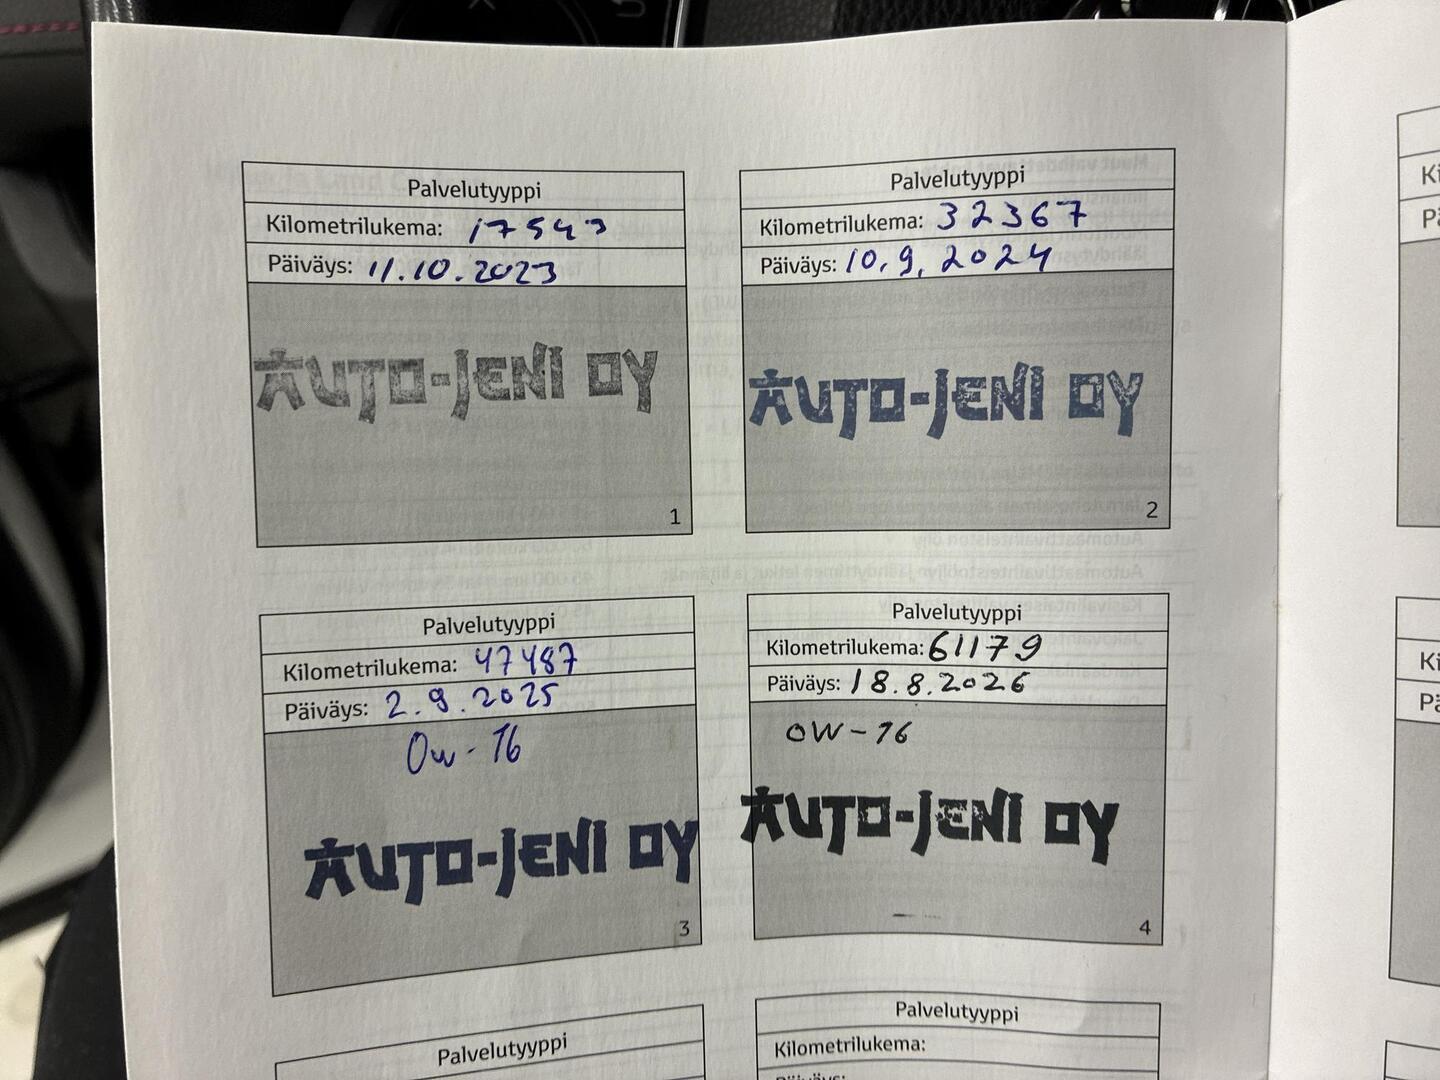 Palvelutyyppi
Kilometrilukema: 17543
Päiväys: 11.10.2023
AUTO-JENI OY
1
Palvelutyyppi
Kilometrilukema: 32367
Päiväys: 10.9.2024
AUTO-JENI OY
2
Palvelutyyppi
Kilometrilukema: 47487
Päiväys: 2.9.2025
OW-16
AUTO-JENI OY
3
Palvelutyyppi
Kilometrilukema: 61179
Päiväys: 18.8.2026
OW-16
AUTO-JENI OY
4
Palvelutyyppi
Palvelutyyppi
Kilometrilukema:
Päiväys: